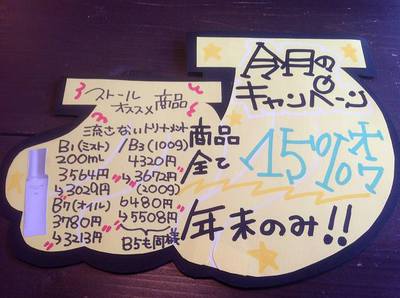 今月の
キャンペーン
商品
全て
15%オフ
年末のみ!!
ストール
オススメ商品
流さないトリートメント
B1(ミスト)
200mL
3564円
↳3029円
B7(オイル)
3780円
↳3213円
B3(100g)
4320円
↳3672円
(200g)
6480円
↳5508円
B5も同様